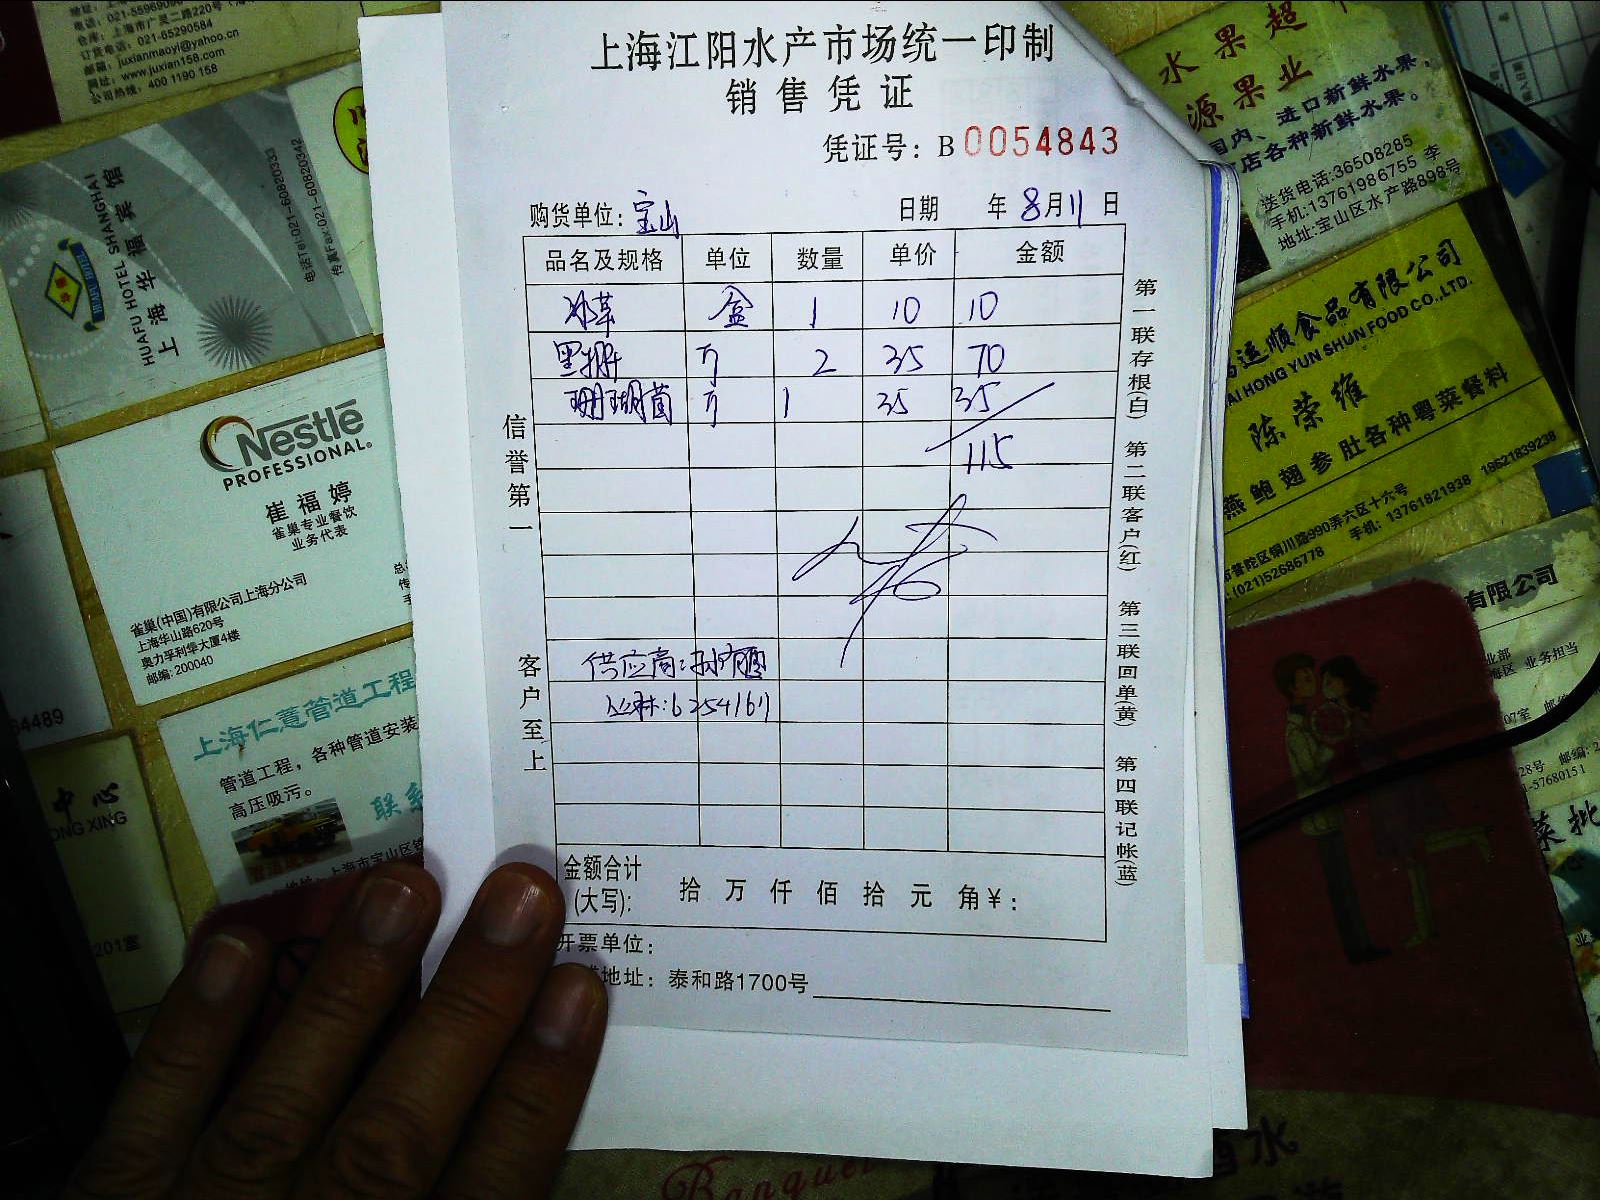 上海江阳水产市场统一印制
销售凭证
凭证号：B 0054843
购货单位：宝山 日期 年 8月 11 日
品名及规格 单位 数量 单价 金额
冰草 盒 1 10 10
黑 斤 2 35 70
珊瑚菌 斤 1 35 35
115
供应商：
6254161
金额合计
(大写)： 拾 万 仟 佰 拾 元 角 ¥：
开票单位：
地址：泰和路1700号
信誉第一
客户至上
第一联存根(白)
第二联客户(红)
第三联回单(黄)
第四联记帐(蓝)
电话：021-55969090
仓库：上海市广灵二路220号
订货电话：021-65290584
邮箱：juxianmaoyi@yahoo.cn
网址：www.juxian158.com
公司热线：400 1190 158
HUAFU HOTEL SHANGHAI
上海华福宾馆
电话Tel:021-60820333
传真Fax:021-60820342
Nestlé
PROFESSIONAL®
崔福婷
雀巢专业餐饮
业务代表
雀巢(中国)有限公司上海分公司
上海华山路620号
奥力孚利华大厦4楼
邮编：200040
64489
上海仁薏管道工程
管道工程，各种管道安装
高压吸污。
联系
中心
ONG XING
201室
水果超
源果业
国内、进口新鲜水果，
店各种新鲜水果。
送货电话:36508285
手机:13761986755 李
地址:宝山区水产路898号
运顺食品有限公司
AI HONG YUN SHUN FOOD CO.,LTD.
陈荣维
燕鲍翅参肚各种粤菜餐料
普陀区铜川路990弄六区十六号
(021)52686778 手机：13761821938 18621839238
有限公司
业务担当
07室
28号 邮编：2
-57680151
菜批
Banquet
酒水